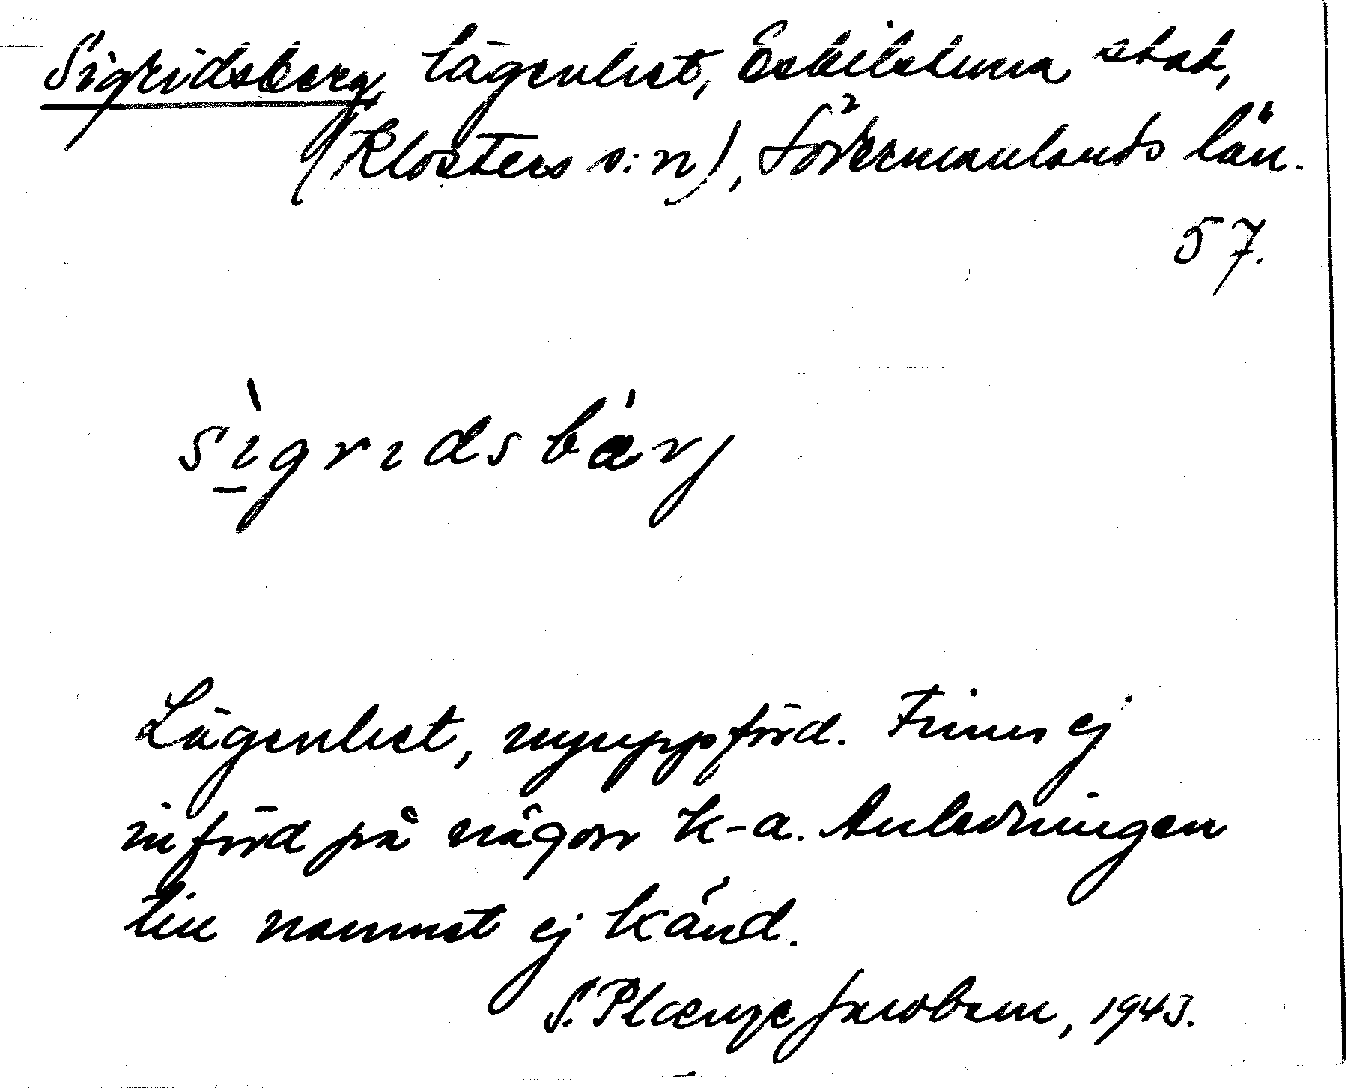 Sigridsberg, lägenhet, Eskilstuna stad,
(Klosters s:n), Södermanlands län.
57.
sìgrıdsbæ̀rj
Lägenhet, nyuppförd. Finns ej
införd på någon k-a. Anledningen
till namnet ej känd.
S. Plænge Jacobson, 1943.